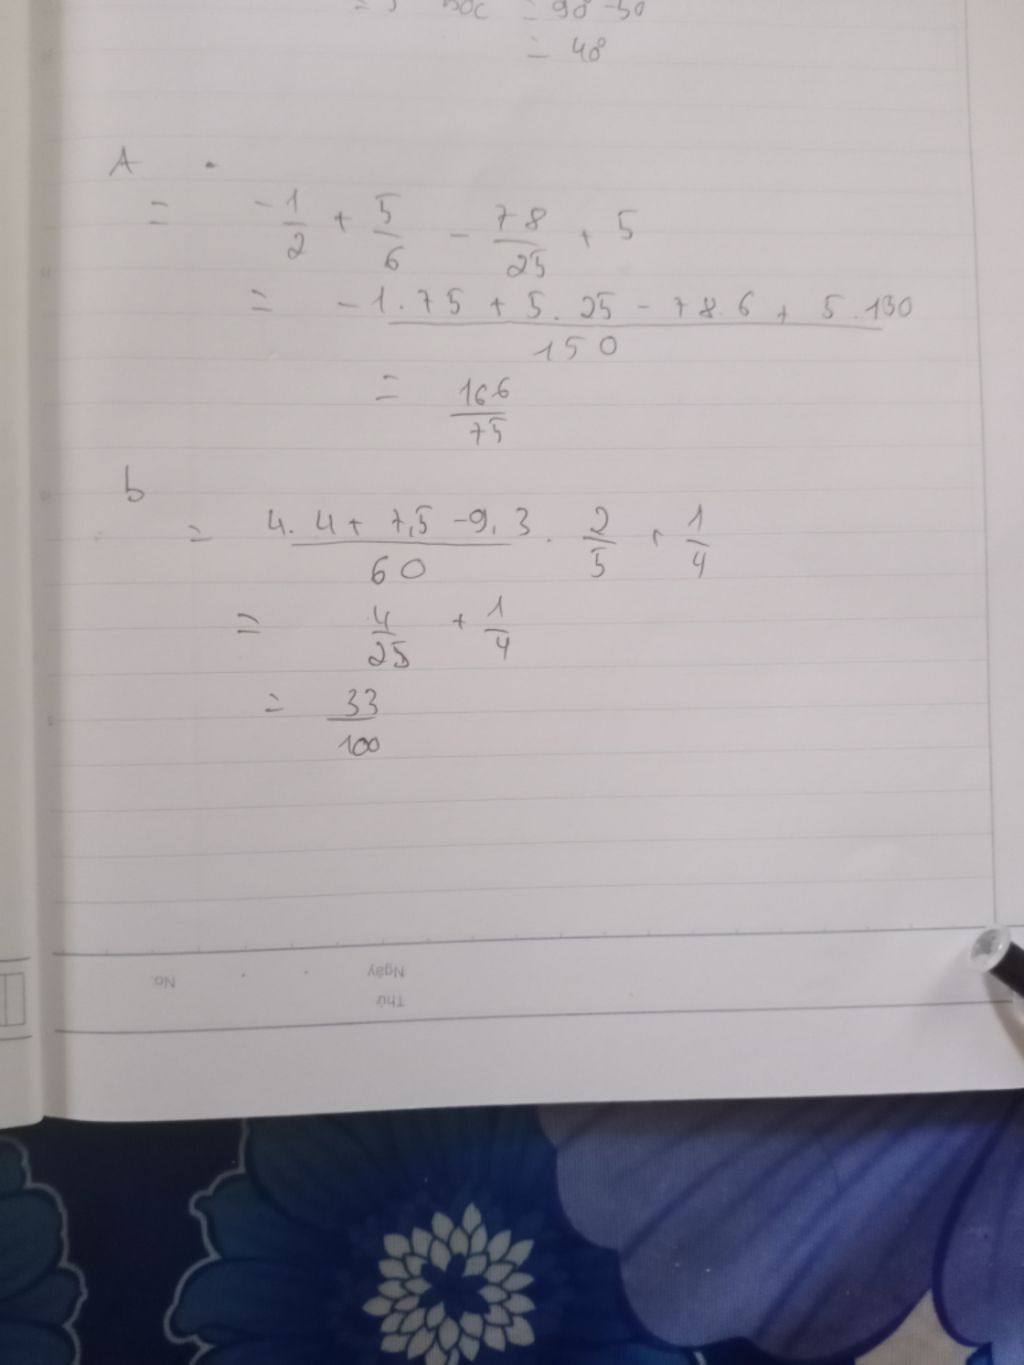 = 90 - 50
= 40
A
= - 1/2 + 5/6 - 78/25 + 5
= - 1.75 + 5.25 - 78.6 + 5.150 / 150
= 166/75
b
= 4.4 + 7,5 - 9.3 / 60 . 2/5 + 1/4
= 4/25 + 1/4
= 33/100
No.
Ngày
Thứ